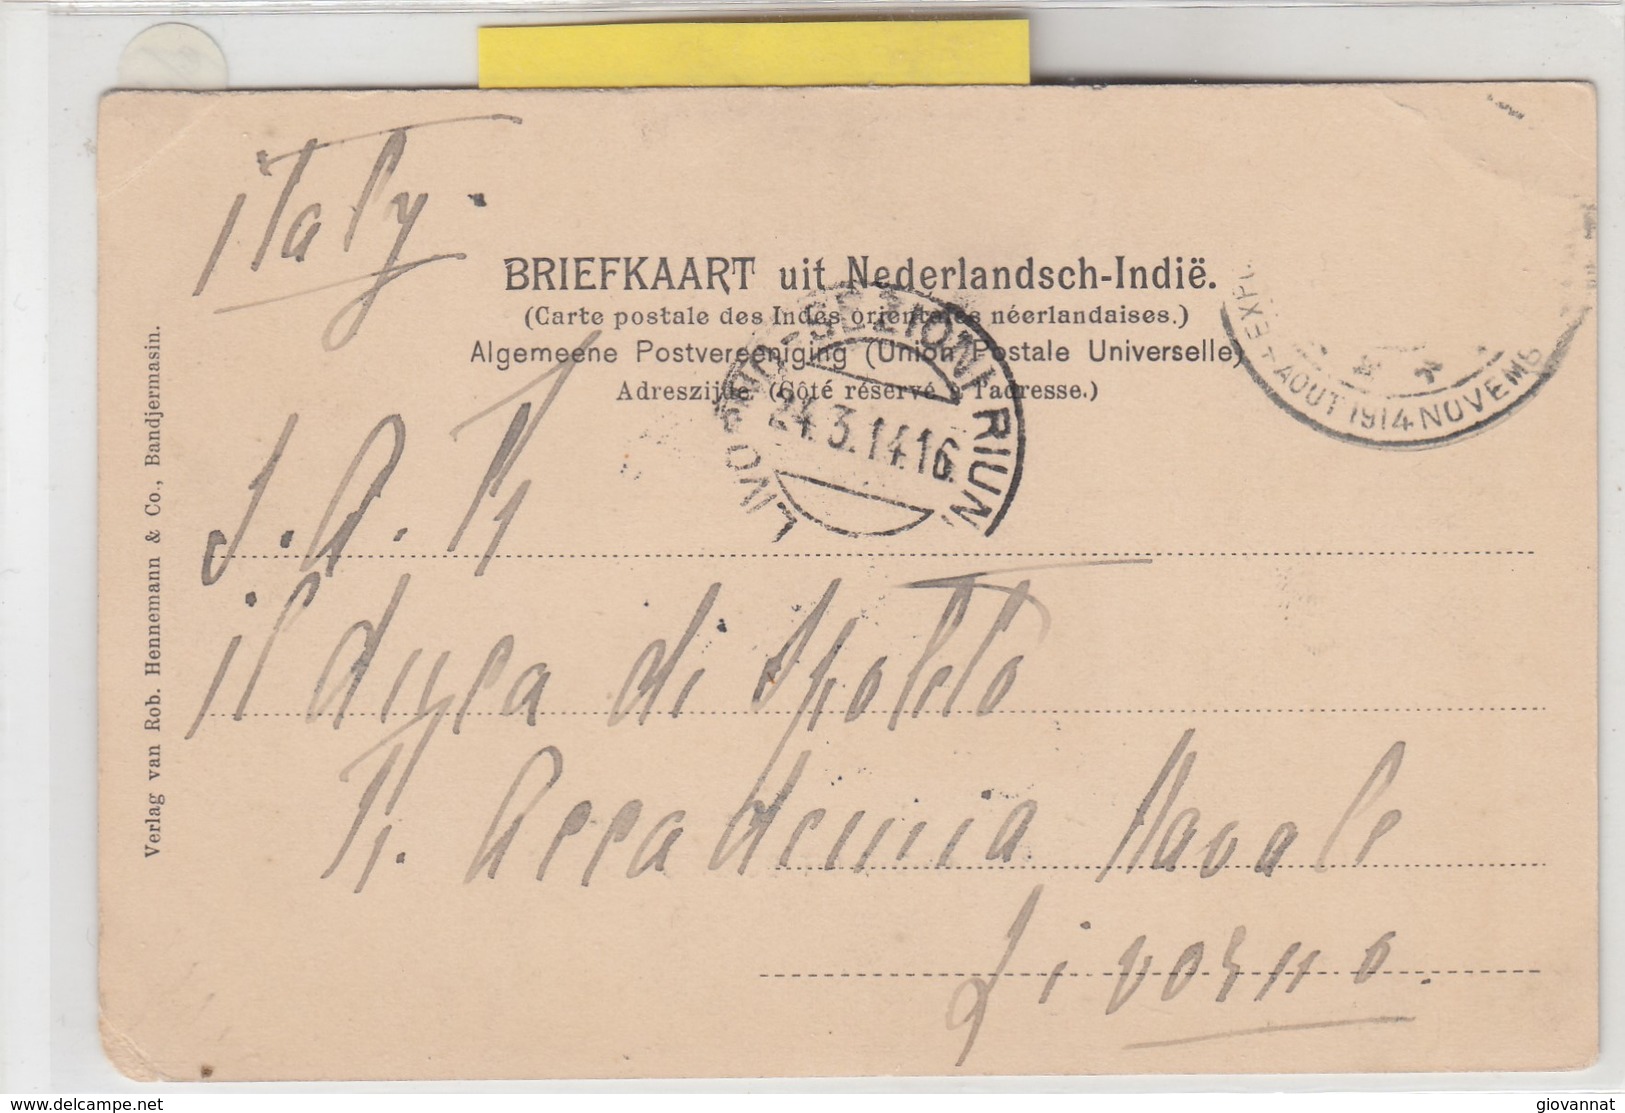 italy.
BRIEFKAART uit Nederlandsch-Indië.
(Carte postale des Indes orientales néerlandaises.)
Algemeene Postvereeniging (Union Postale Universelle)
Adreszijde. (Côté réservé à l'adresse.)
LIVORNO-SEZIONI RIUN
24.3.14.16
AOUT 1914 NOVEMB
S. A. R
il duca di Spoleto
R. Accademia Navale
Livorno.
Verlag van Rob. Hennemann & Co., Bandjermasin.
delcampe.net
giovannat